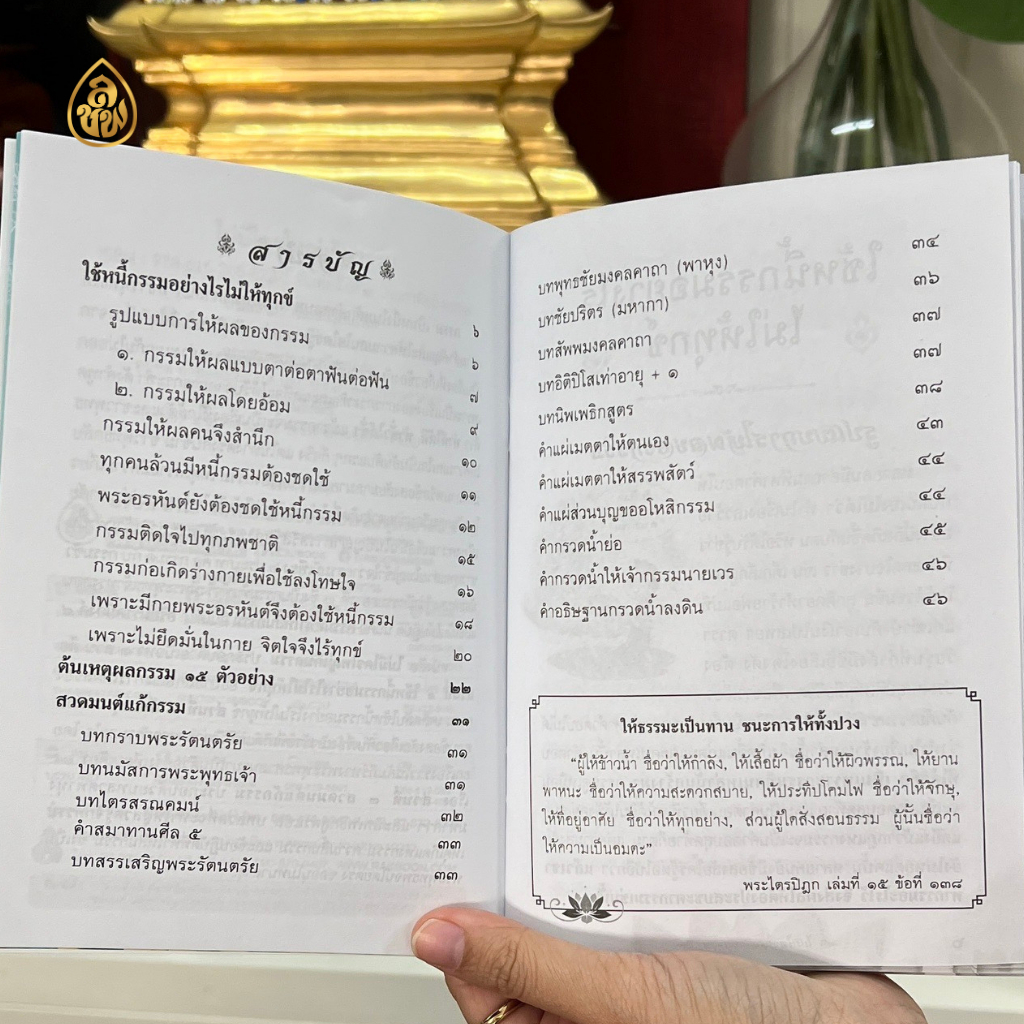 สารบัญ
ใช้หนี้กรรมอย่างไรไม่ให้ทุกข์ ๖
รูปแบบการให้ผลของกรรม ๖
๑. กรรมให้ผลแบบตาต่อตาฟันต่อฟัน ๗
๒. กรรมให้ผลโดยอ้อม ๙
กรรมให้ผลคนจึงสำนึก ๑๐
ทุกคนล้วนมีหนี้กรรมต้องชดใช้ ๑๑
พระอรหันต์ยังต้องชดใช้หนี้กรรม ๑๒
กรรมติดใจไปทุกภพชาติ ๑๕
กรรมก่อเกิดร่างกายเพื่อใช้ลงโทษใจ ๑๖
เพราะมีกายพระอรหันต์จึงต้องใช้หนี้กรรม ๑๘
เพราะไม่ยึดมั่นในกาย จิตใจจึงไร้ทุกข์ ๒๐
ต้นเหตุผลกรรม ๑๕ ตัวอย่าง ๒๒
สวดมนต์แก้กรรม ๓๑
บทกราบพระรัตนตรัย ๓๑
บทนมัสการพระพุทธเจ้า ๓๑
บทไตรสรณคมน์ ๓๒
คำสมาทานศีล ๕ ๓๓
บทสรรเสริญพระรัตนตรัย ๓๓
บทพุทธชัยมงคลคาถา (พาหุง) ๓๔
บทชัยปริตร (มหากา) ๓๖
บทสัพพมงคลคาถา ๓๗
บทอิติปิโสเท่าอายุ + ๑ ๓๗
บทนิพเพธิกสูตร ๓๘
คำแผ่เมตตาให้ตนเอง ๔๓
คำแผ่เมตตาให้สรรพสัตว์ ๔๔
คำแผ่ส่วนบุญขออโหสิกรรม ๔๔
คำกรวดน้ำย่อ ๔๕
คำกรวดน้ำให้เจ้ากรรมนายเวร ๔๖
คำอธิษฐานกรวดน้ำลงดิน ๔๖
ให้ธรรมะเป็นทาน ชนะการให้ทั้งปวง
“ผู้ให้ข้าวน้ำ ชื่อว่าให้กำลัง, ให้เสื้อผ้า ชื่อว่าให้ผิวพรรณ, ให้ยาน
พาหนะ ชื่อว่าให้ความสะดวกสบาย, ให้ประทีปโคมไฟ ชื่อว่าให้จักษุ,
ให้ที่อยู่อาศัย ชื่อว่าให้ทุกอย่าง, ส่วนผู้ใดสั่งสอนธรรม ผู้นั้นชื่อว่า
ให้ความเป็นอมตะ”
พระไตรปิฎก เล่มที่ ๑๕ ข้อที่ ๑๓๘